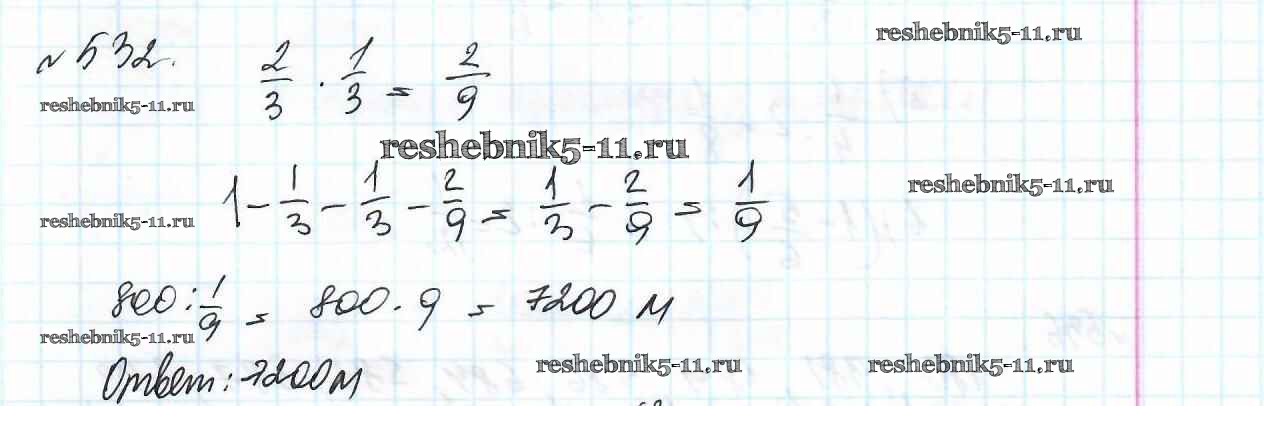 reshebnik5-11.ru
№532. 2/3 · 1/3 = 2/9
reshebnik5-11.ru
reshebnik5-11.ru
1 - 1/3 - 1/3 - 2/9 = 1/3 - 2/9 = 1/9
reshebnik5-11.ru
reshebnik5-11.ru
800 : 1/9 = 800 · 9 = 7200 м
reshebnik5-11.ru
Ответ: 7200м
reshebnik5-11.ru
reshebnik5-11.ru